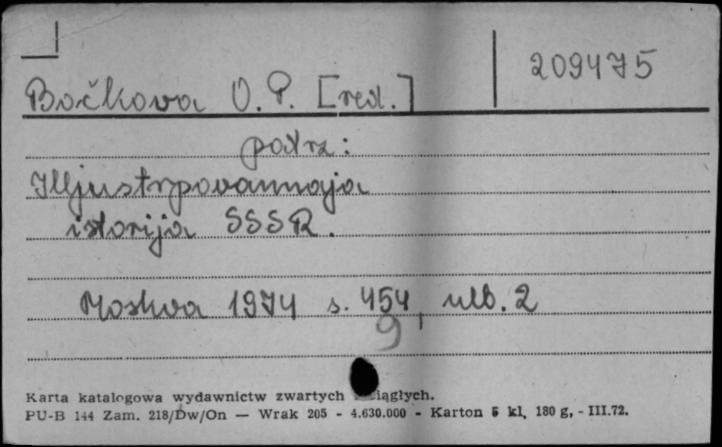 209475
Bočkova O. P. [red.]
patrz:
Illjustrpovannaja
istorija SSSR.
Moskva 1974 s. 454, nlb. 2
9
Karta katalogowa wydawnictw zwartych ciągłych.
PU-B 144 Zam. 218/Dw/On — Wrak 205 - 4.630.000 - Karton 5 kl, 180 g, - III.72.